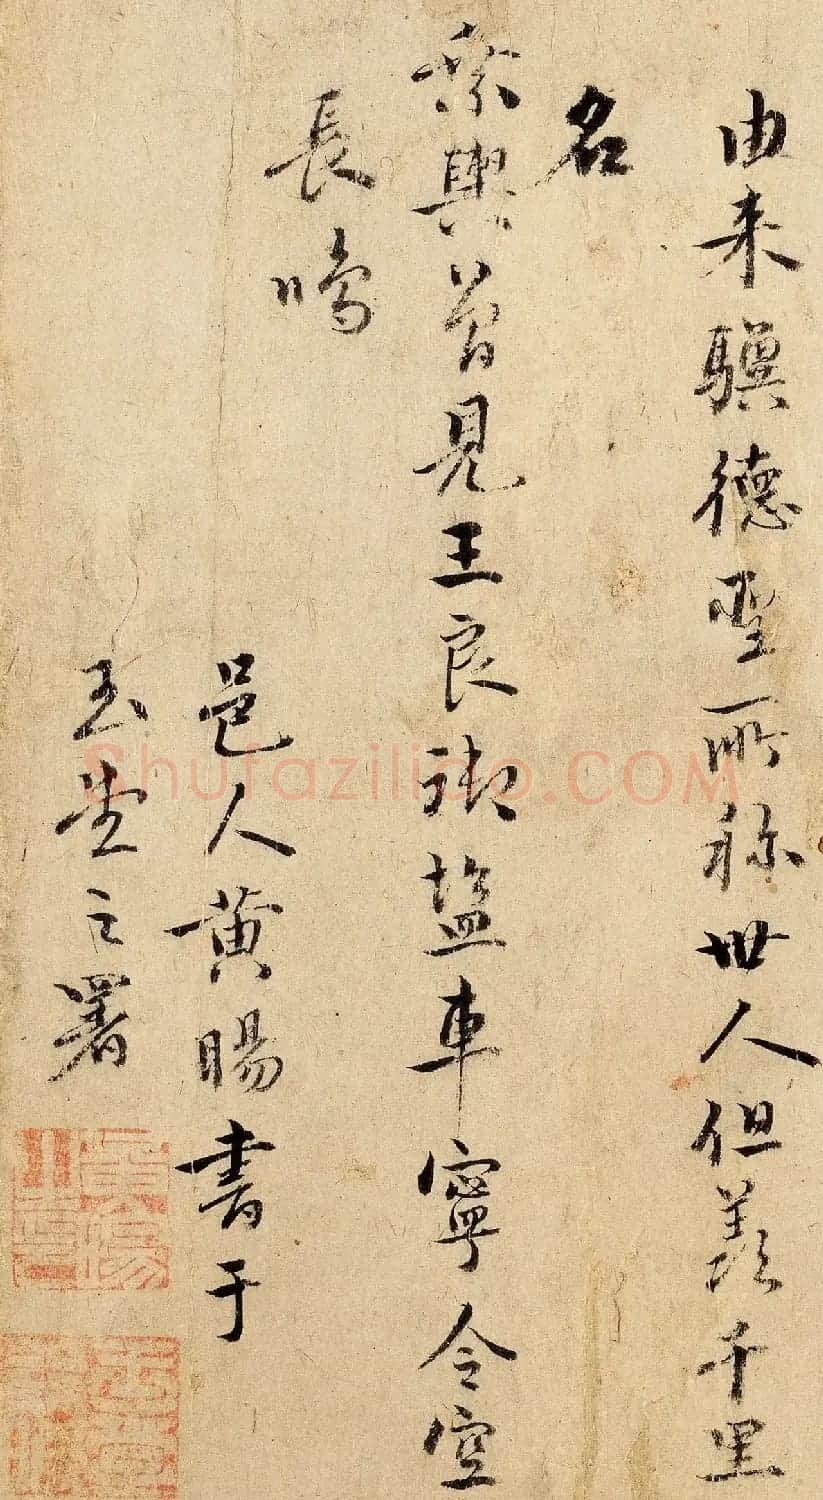 由来驥德聖所称世人但羨千里
名
乘輿曾見王良御塩車寧令空
長鳴
邑人黄暘書于
玉堂之署
Shufazilido.COM